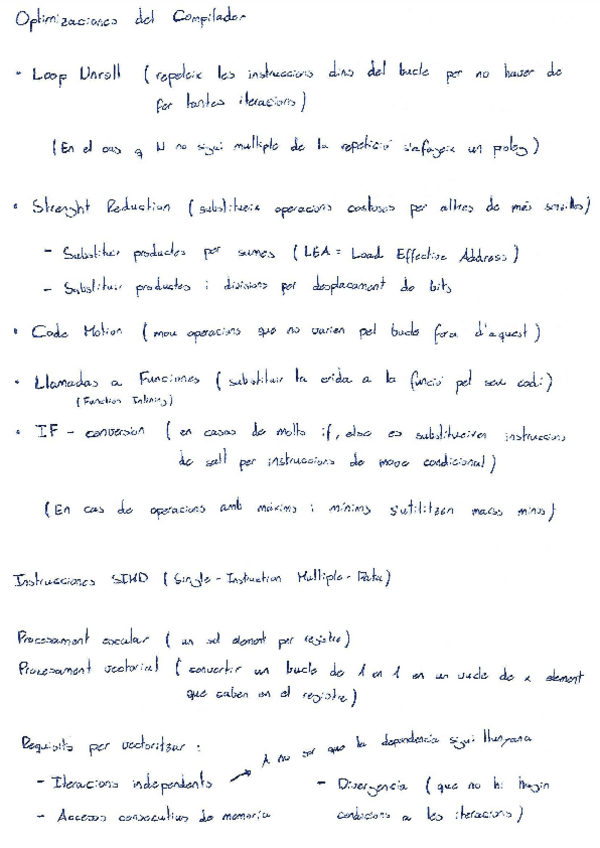 Optimizaciones del Compilador
• Loop Unroll (repeteix les instruccions dins del bucle per no haver de
fer tantes iteracions)
(En el cas q N no sigui multiple de la repetició s'afegeix un )
• Strenght Reduction (substitueix operacions costoses per altres de més senzilles)
- Substituir productes per sumes (LEA = Load Effective Address)
- Substituir productes i divisions per desplacament de bits
• Code Motion (mou operacions que no varien pel bucle fora d'aquest)
• Llamadas a Funciones (substituir la crida a la funció pel seu codi)
(Function Inlining)
• IF - conversion (en casos de molts if, else es substitueixen instruccions
de salt per instruccions de move condicional)
(En cas de operacions amb màxims i mínims s'utilitzen )
Instrucciones SIMD (Single - Instruction Multiple - Data)
Processament escalar (un sol element per registre)
Processament vectorial (convertir un bucle de 1 en 1 en un bucle de x element
que caben en el registre)
Requisits per vectoritzar :
A no ser que la dependencia sigui llunyana
- Iteracions independents
- Divergencia (que no hi hagin
- Accesos consecutius de memoria
condicions a les iteracions)